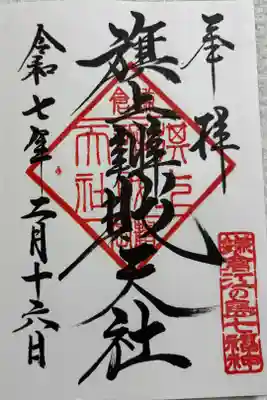 奉拝
旗上辨財天社
令和七年二月十六日
鎌倉江の島七福神